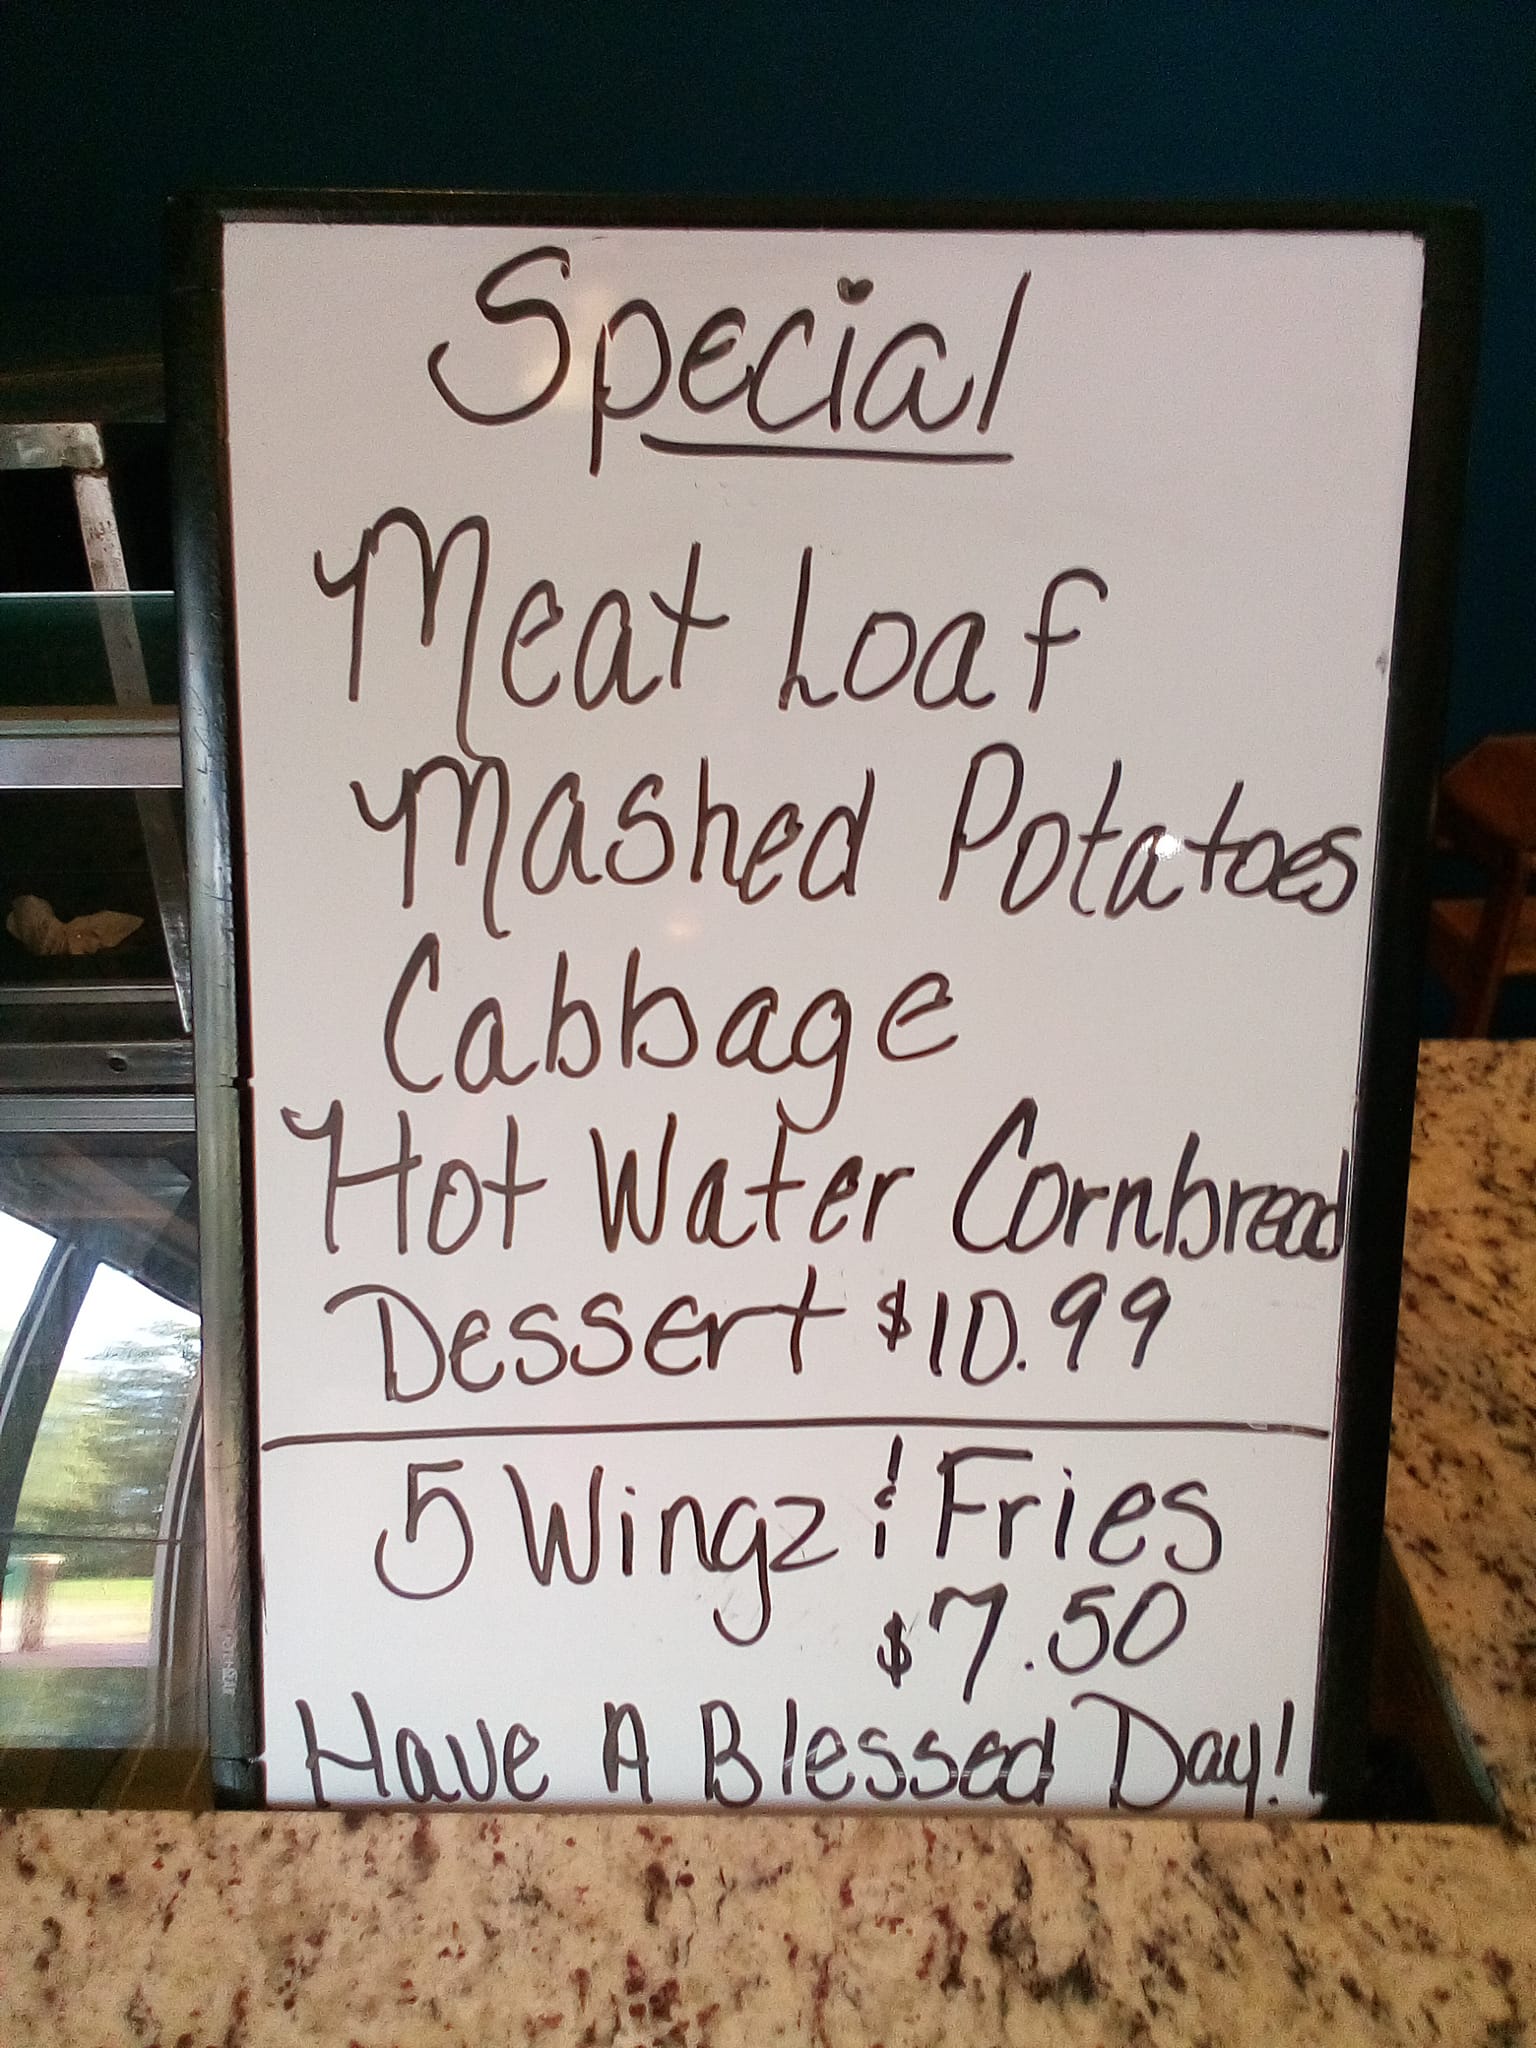 Special
Meat Loaf
Mashed Potatoes
Cabbage
Hot Water Cornbread
Dessert $10.99
5 Wingz & Fries
$7.50
Have A Blessed Day!